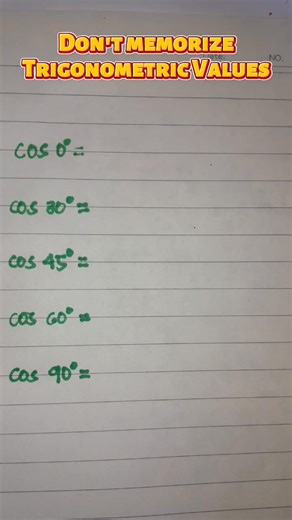 DON'T MEMORIZE
TRIGONOMETRIC VALUES
Date:
NO.
cos 0°=
cos 30°=
cos 45°=
cos 60°=
cos 90°=